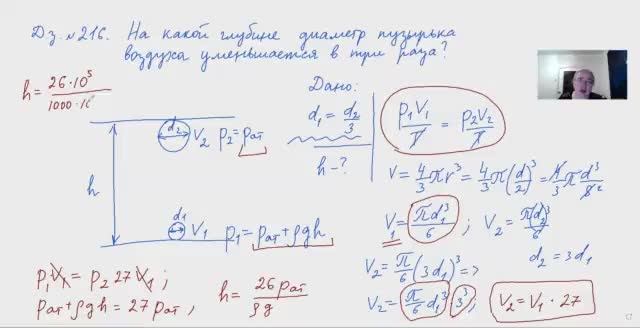 Дз. №216. На какой глубине диаметр пузырька
воздуха уменьшается в три раза?
h = 26·10⁵ / 1000·10
Дано:
d₁ = d₂/3
h - ?
d₂ V₂ p₂ = pат
h
d₁ V₁ p₁ = pат + ρgh
p₁V₁/T = p₂V₂/T
V = 4/3 πr³ = 4/3 π(d/2)³ = 4/3 π d³/8₂
V₁ = πd₁³/6 ; V₂ = πd₂³/6
V₂ = π/6 (3d₁)³ => d₂ = 3d₁
V₂ = π/6 d₁³ 3³ ; V₂ = V₁ · 27
p₁V₁ = p₂ 27 V₁ ;
pат + ρgh = 27 pат , h = 26 pат / ρg